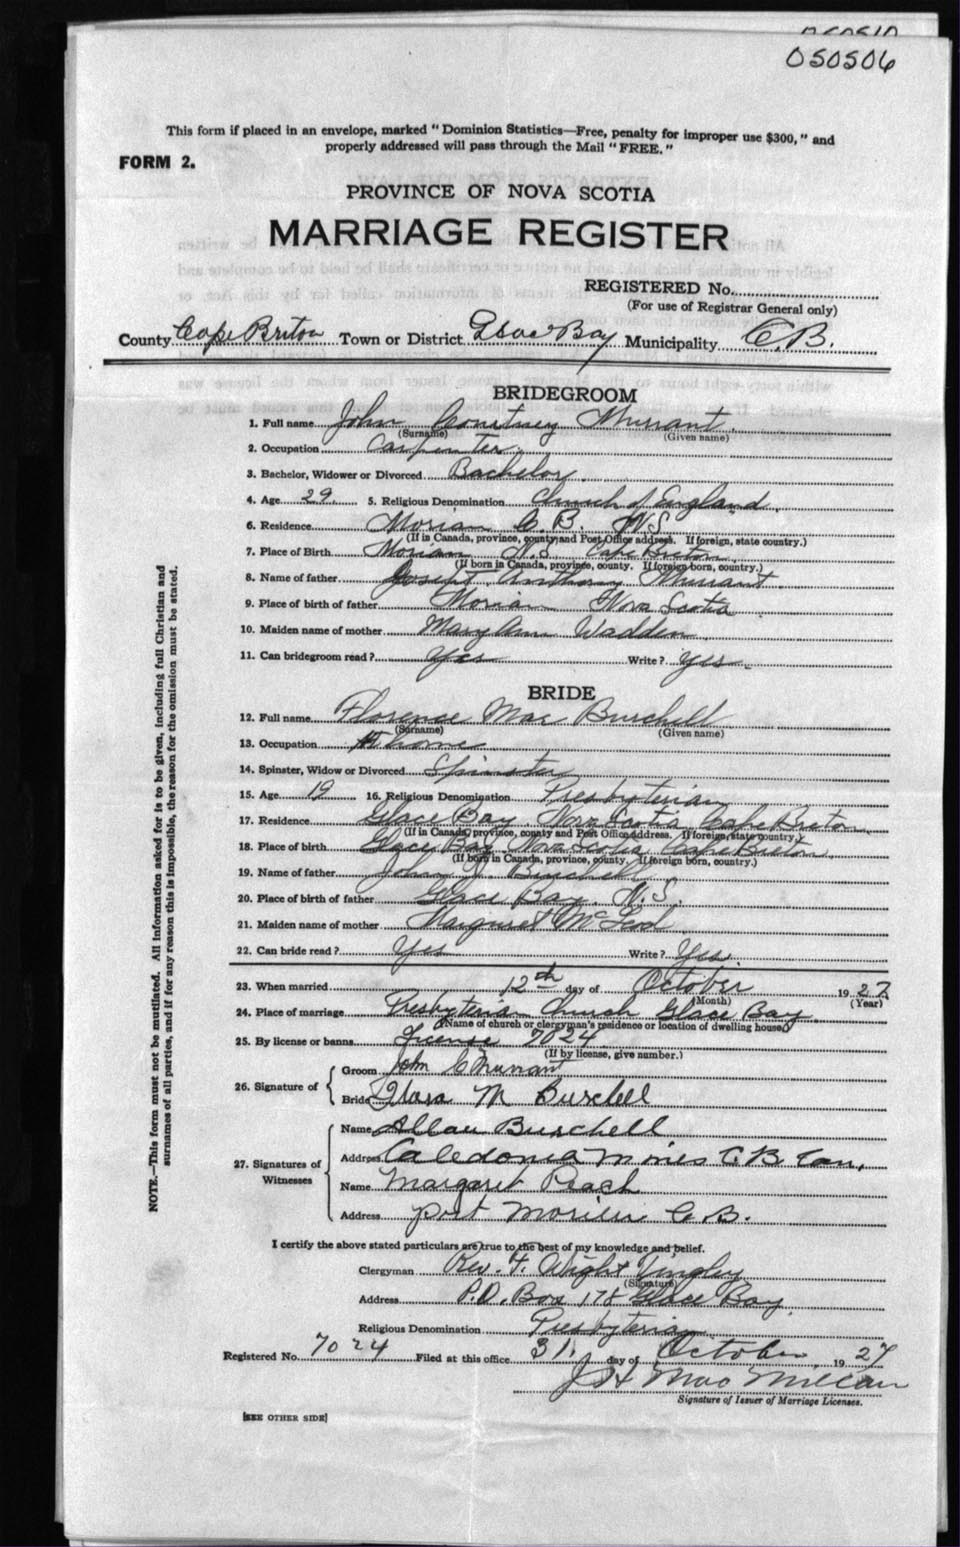 050506
This form if placed in an envelope, marked "Dominion Statistics—Free, penalty for improper use $300," and
properly addressed will pass through the Mail "FREE."
FORM 2.
PROVINCE OF NOVA SCOTIA
MARRIAGE REGISTER
REGISTERED No.
(For use of Registrar General only)
County Cape Briton Town or District Glace Bay Municipality C.B.
BRIDEGROOM
1. Full name John Courtney Murrant
(Surname) (Given name)
2. Occupation Carpenter
3. Bachelor, Widower or Divorced Bachelor
4. Age 29 5. Religious Denomination Church of England
6. Residence Morian C.B. N.S.
(If in Canada, province, county and Post Office address. If foreign, state country.)
7. Place of Birth Morian N.S. Cape Breton
(If born in Canada, province, county. If foreign born, country.)
8. Name of father Joseph Anthony Murrant
9. Place of birth of father Morian Nova Scotia
10. Maiden name of mother Mary Ann Wadden
11. Can bridegroom read? Yes Write? Yes
BRIDE
12. Full name Florence Mae Burchell
(Surname) (Given name)
13. Occupation At home
14. Spinster, Widow or Divorced Spinster
15. Age 19 16. Religious Denomination Presbyterian
17. Residence Glace Bay Nova Scotia Cape Breton
(If in Canada, province, county and Post Office address. If foreign, state country.)
18. Place of birth Glace Bay Nova Scotia Cape Breton
(If born in Canada, province, county. If foreign born, country.)
19. Name of father John J. Burchell
20. Place of birth of father Glace Bay. N.S.
21. Maiden name of mother Margaret McLeod
22. Can bride read? Yes Write? Yes.
23. When married 12th day of October 1927
(Month) (Year)
24. Place of marriage Presbyterian Church Glace Bay
(Name of church or clergyman's residence or location of dwelling house)
25. By license or banns License 7024
(If by license, give number.)
26. Signature of
Groom John C Murrant
Bride M Burchell
27. Signatures of Witnesses
Name Allan Burchell
Address Caledonia Mines C.B. Can.
Name Margaret Peach
Address Port Morien C.B.
I certify the above stated particulars are true to the best of my knowledge and belief.
Clergyman Rev. F. Wight Tingley
(Signature)
Address P.O. Box 178 Glace Bay
Religious Denomination Presbyterian
Registered No. 7024 Filed at this office 31. day of October, 1927
J H MacMillan
Signature of Issuer of Marriage Licenses.
[SEE OTHER SIDE]
NOTE.—This form must not be mutilated. All information asked for is to be given, including full Christian and
surnames of all parties, and if for any reason this is impossible, the reason for the omission must be stated.